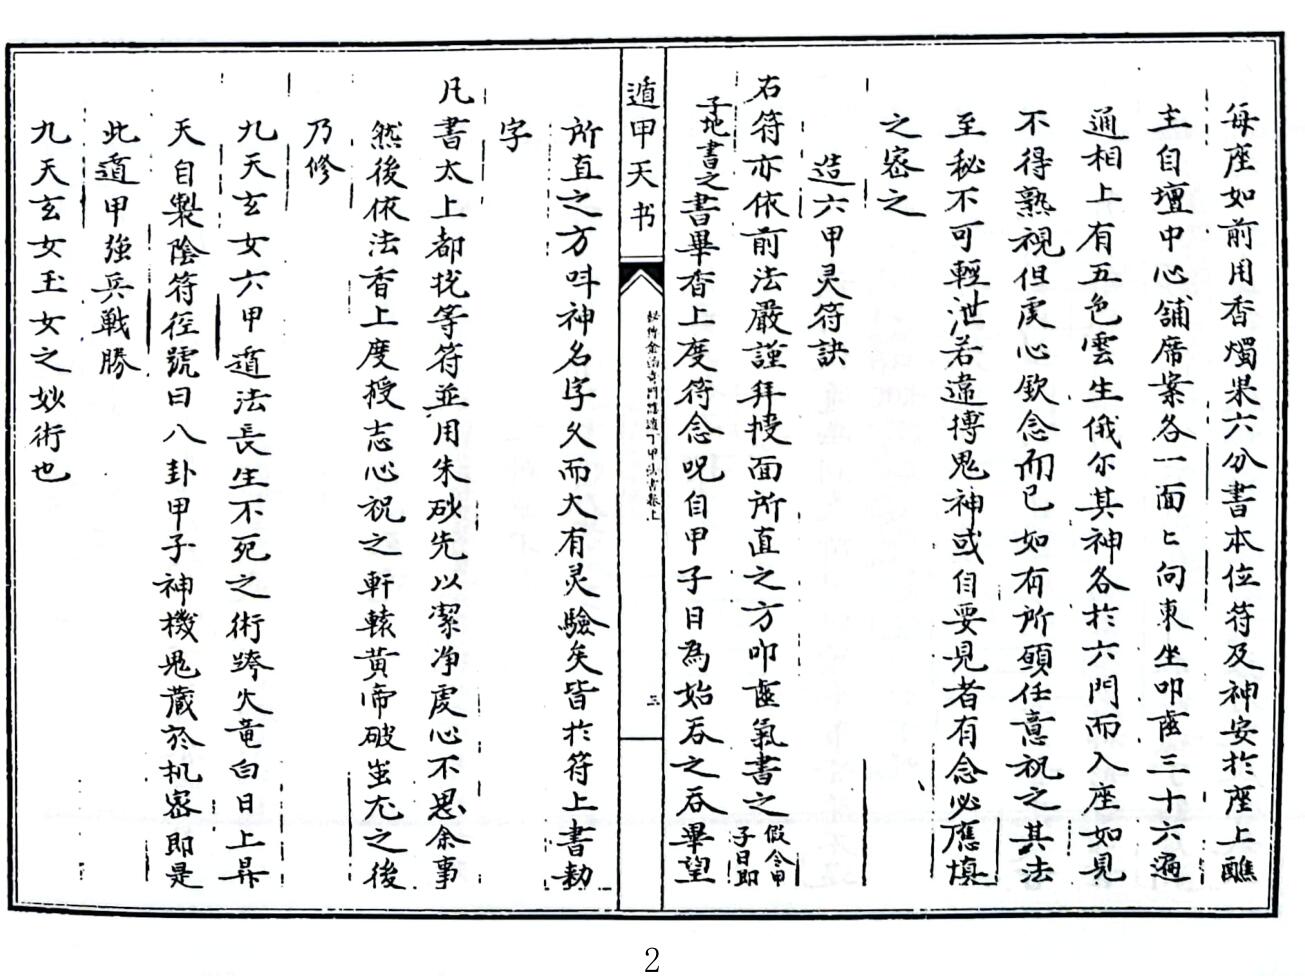 每座如前用香燭果六分書本位符及神安於座上醮
主自壇中心舖席案各一面上向東坐叩齒三十六遍
通相上有五色雲生俄尔其神各於六門而入座如見
不得熟視但虔心欽念而已如有所願任意祝之其法
至秘不可輕泄若違摶鬼神或自要見者有念必應慎
之密之
造六甲灵符訣
右符亦依前法嚴謹拜授面所直之方叩齒氣書之假令甲子日即
子地書之書畢香上度符念呪自甲子日為始吞之吞畢望
遁甲天书
秘傳金洞奇門隱遁丁甲法書卷上
三
所直之方呌神名字久而大有灵驗矣皆於符上書勅
字
凡書太上都找等符並用朱砂先以潔净虔心不思余事
然後依法香上度授志心祝之軒轅黃帝破蚩尤之後
乃修
九天玄女六甲遁法長生不死之術跨火竜白日上昇
天自製陰符徑號曰八卦甲子神機鬼藏於机密即是
此遁甲強兵戰勝
九天玄女玉女之妙術也
2